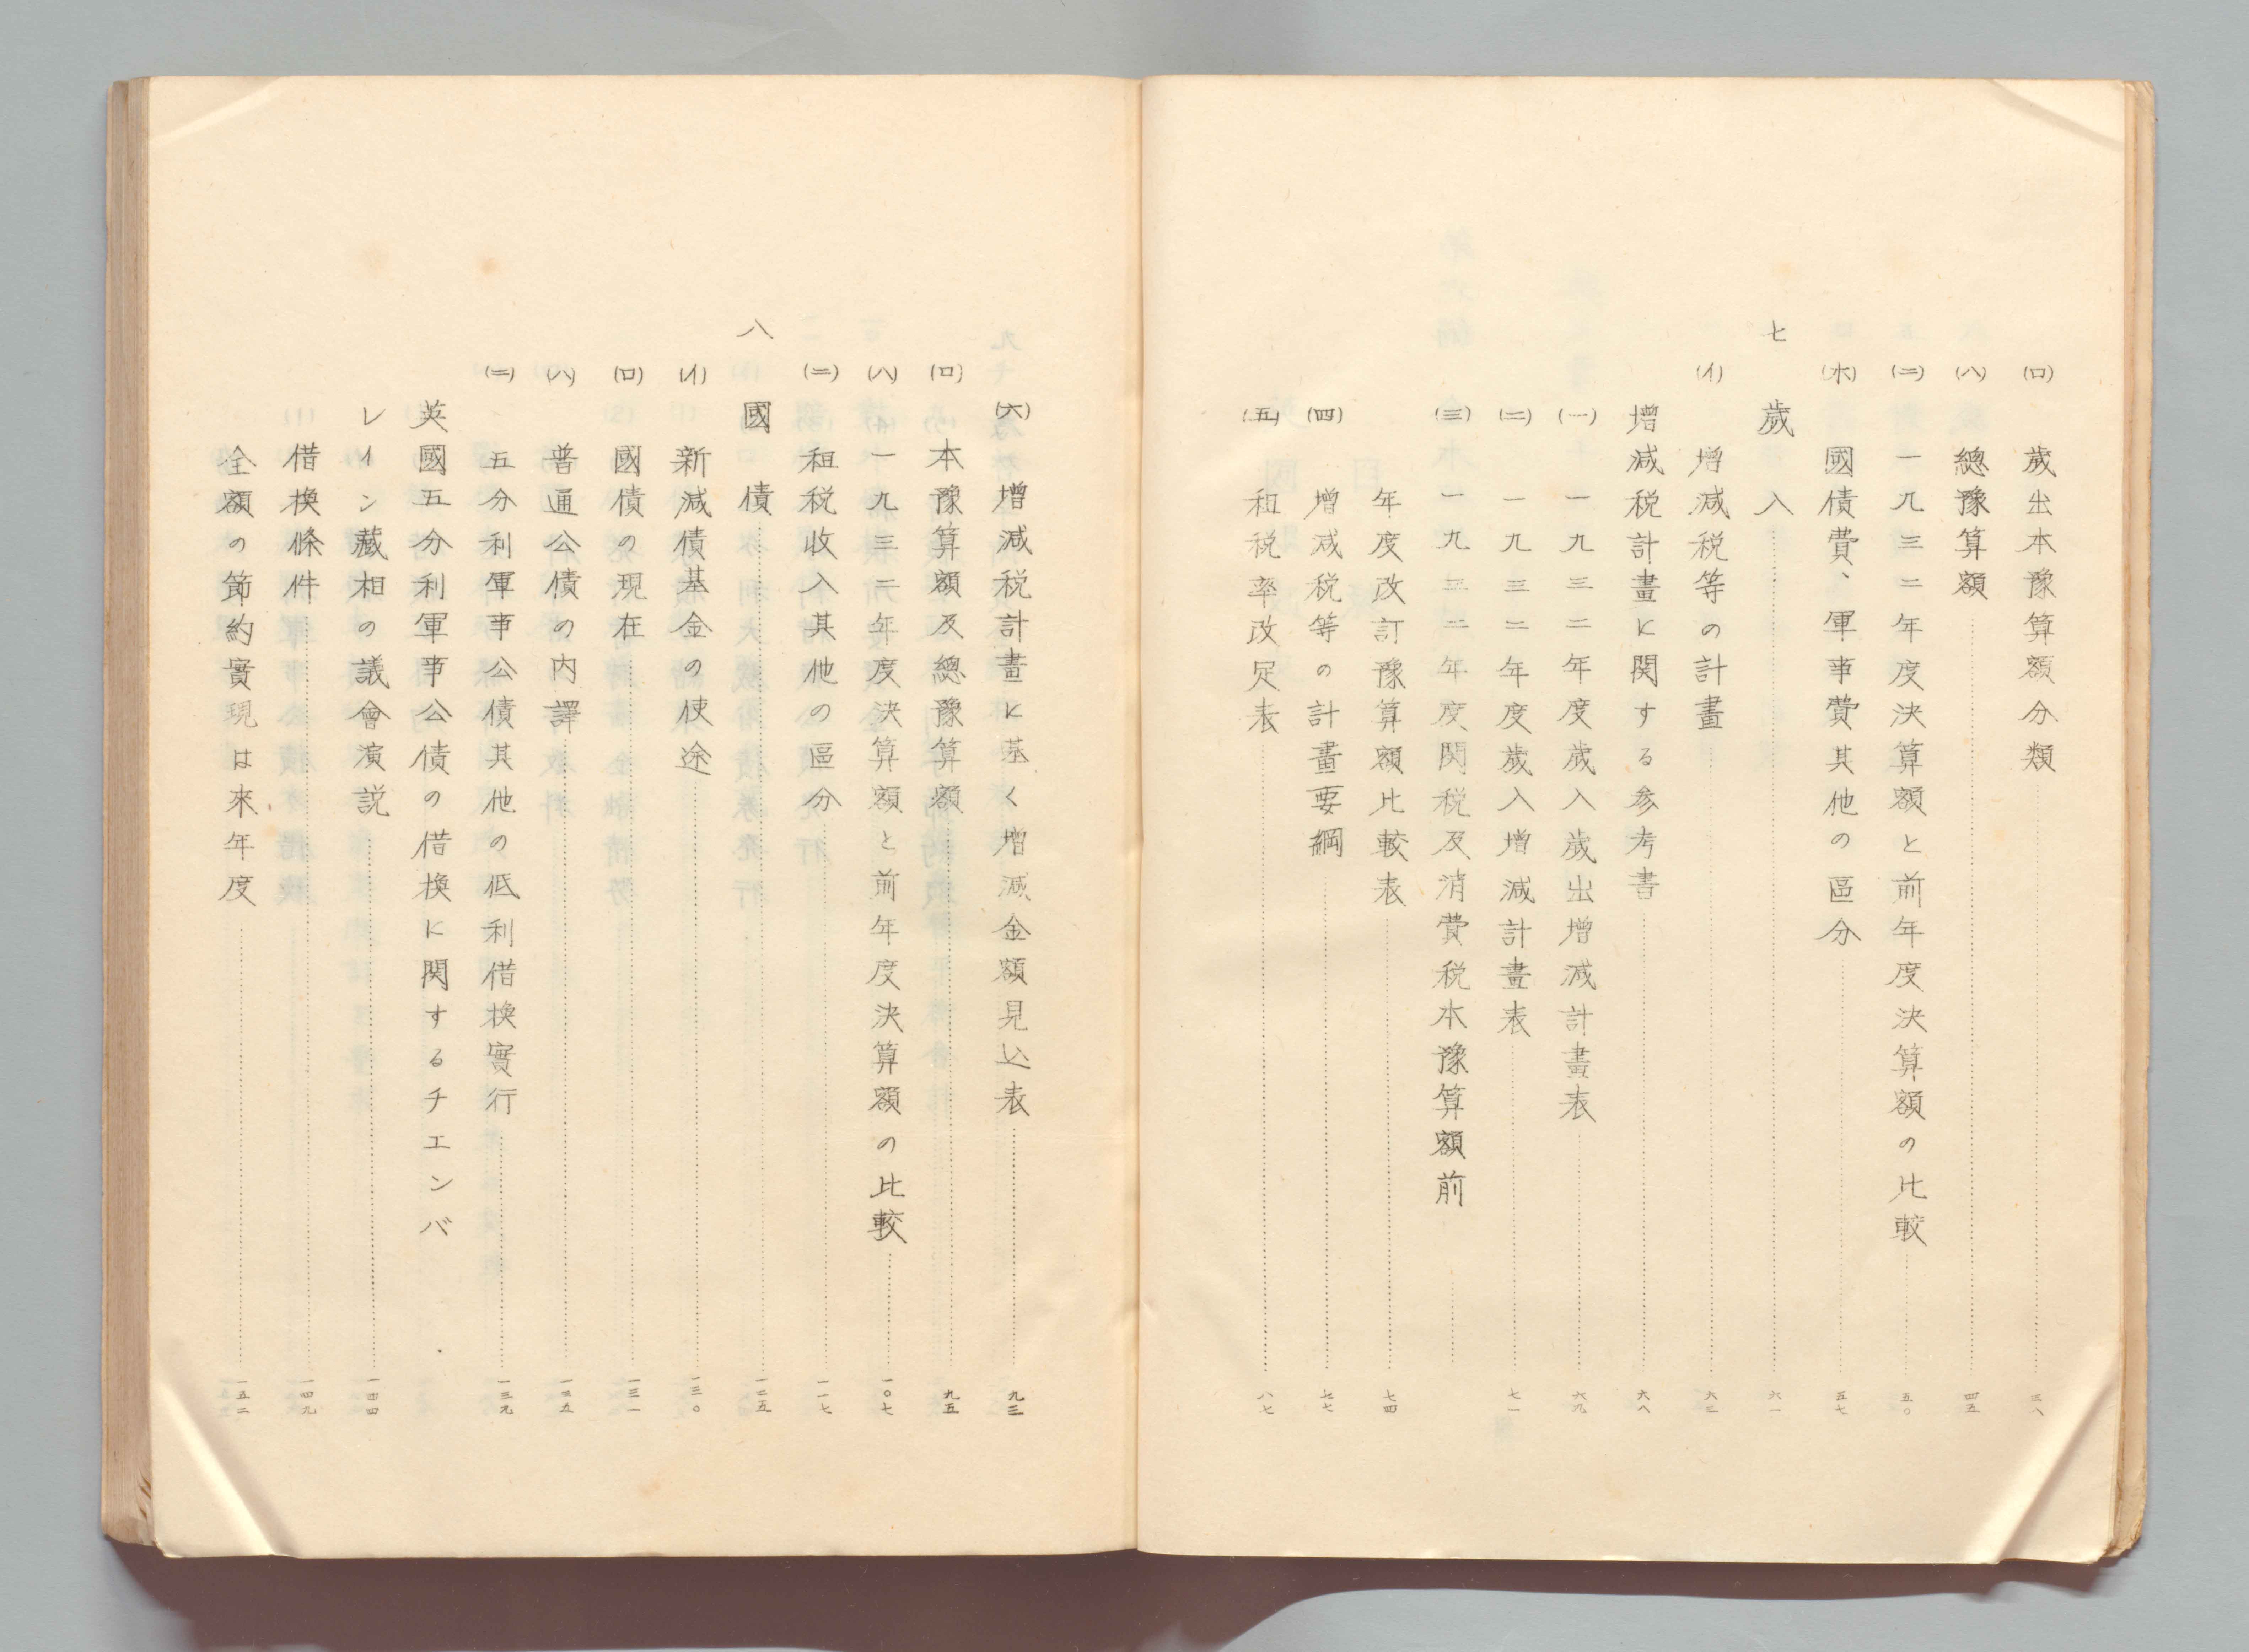 (ロ) 歳出本豫算額分類……三八
(ハ) 總豫算額……四五
(ニ) 一九三二年度決算額と前年度決算額の比較……五〇
(ホ) 國債費、軍事費其他の區分……五七
七 歳入……六一
(イ) 増減税等の計畫……六二
増減税計畫に関する参考書……六八
(一) 一九三二年度歳入歳出増減計畫表……六九
(二) 一九三二年度歳入増減計畫表……七一
(三) 一九三二年度関税及消費税本豫算額前
年度改訂豫算額比較表……七四
(四) 増減税等の計畫要綱……七七
(五) 租税率改定表……八七
(六) 増減税計畫に基く増減金額見込表……九三
(ロ) 本豫算額及總豫算額……九五
(ハ) 一九三二年度決算額と前年度決算額の比較……一〇七
(ニ) 租税收入其他の區分……一一七
八 國債……一二五
(イ) 新減債基金の使途……一三〇
(ロ) 國債の現在……一三一
(ハ) 普通公債の内譯……一三五
(ニ) 五分利軍事公債其他の低利借換實行……一三九
英國五分利軍事公債の借換に関するチエンバ
レイン藏相の議會演説……一四四
借換條件……一四九
全額の節約實現は來年度……一五二